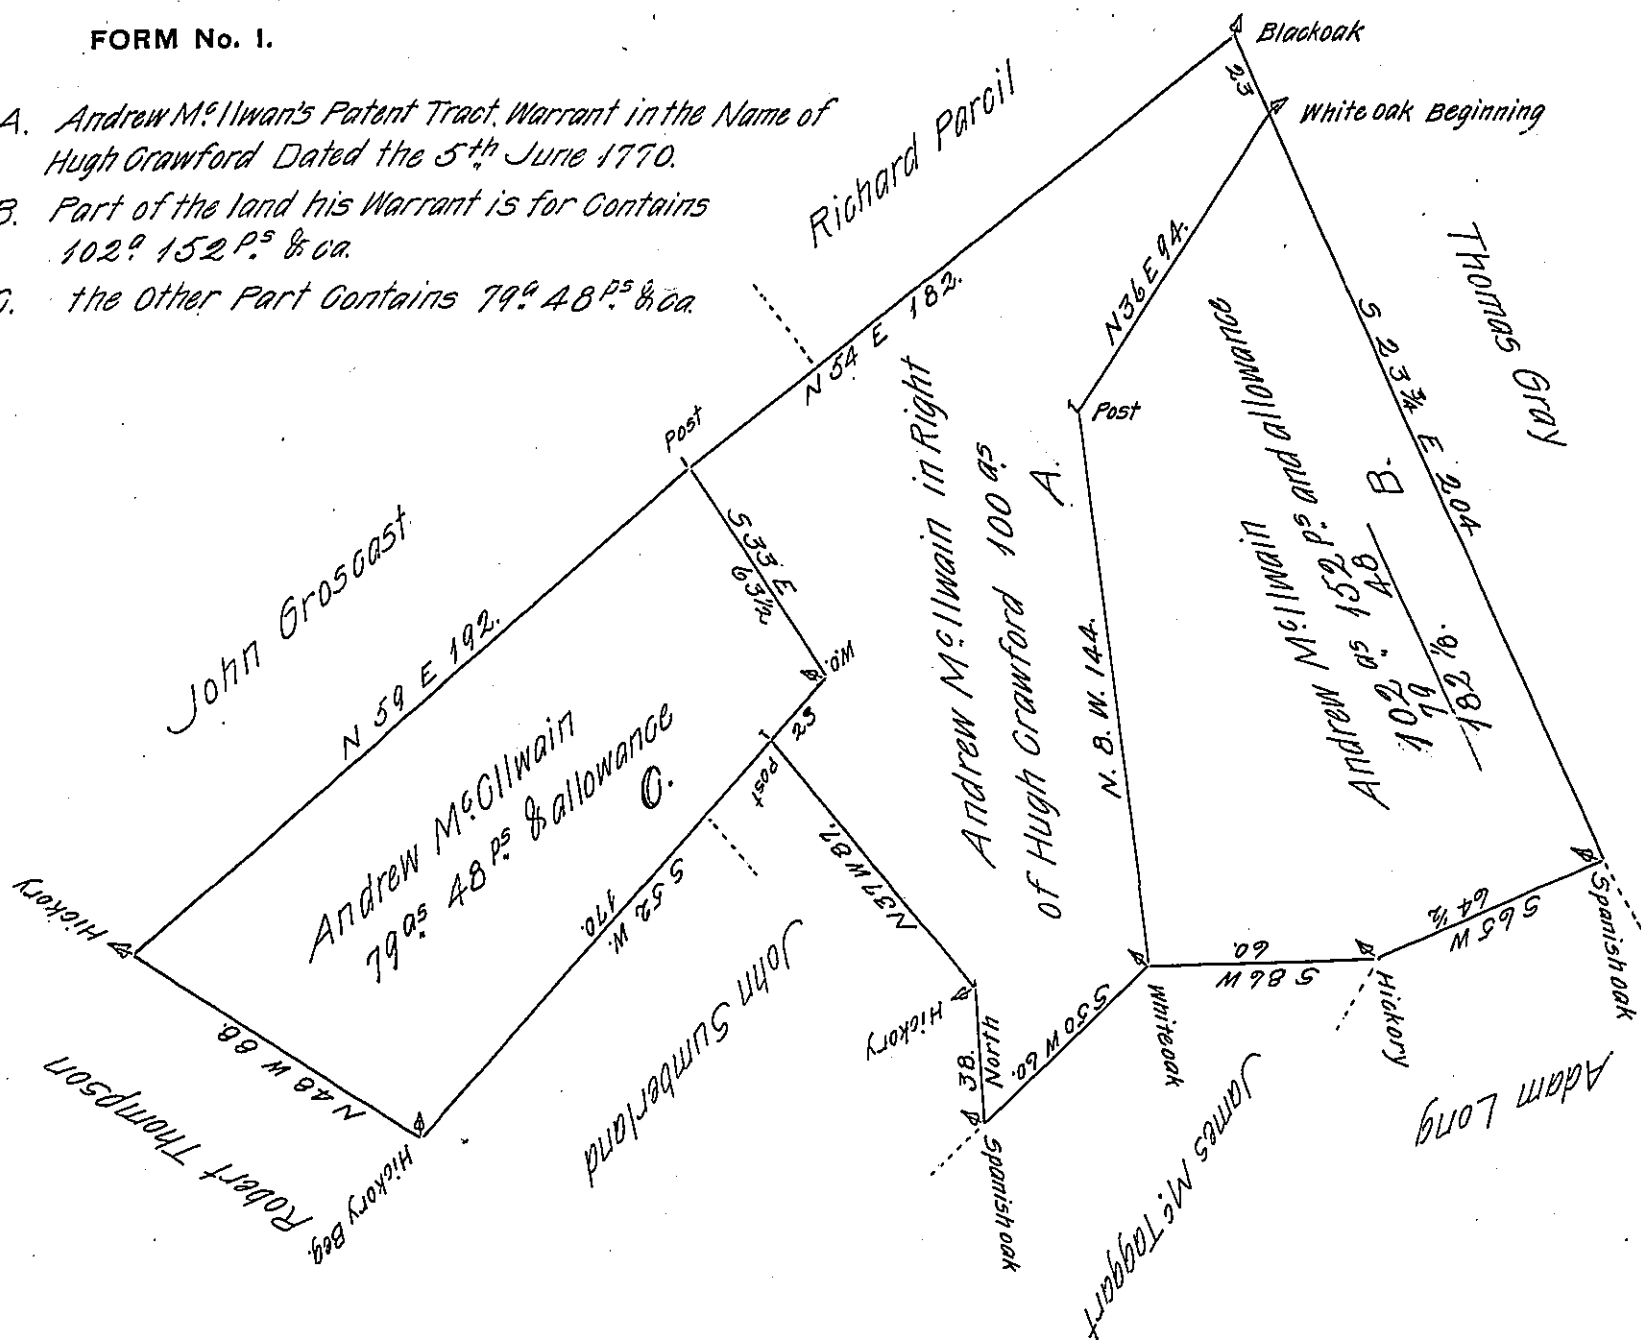 FORM No. 1.
A. Andrew Mc.Ilwan's Patent Tract. Warrant in the Name of
Hugh Crawford Dated the 5th June 1770.
B. Part of the land his Warrant is for Contains
102a. 152 Ps. & ca.
C. the Other Part Contains 79a. 48 ps. & ca.
Blackoak
23
White oak Beginning
Richard Parcil
N 54 E 182.
N 36 E 94.
Thomas Gray
S 23 3/4 E 204
Post
Post
John Groscast
N 59 E 192.
S 33 E
63 1/2
W.O.
23
Post
Andrew Mc.Ilwain in Right
of Hugh Crawford 100 as
A.
N. 8. W. 144.
Andrew Mc.Ilwain
102 as. 152 Ps. and allowance
79 48
182 1/8.
B.
Andrew Mc.Cllwain
79 as. 48 ps. & allowance
C.
S 52 W.
170.
N 37 W 87.
Hickory
N 48 W 88.
Robert Thompson
Hickory Beg.
John Sumberland
Hickory
38.
North
Spanish oak
S 50 W 60.
Whiteoak
S 86 W
60.
Hickory
S 65 W
64 1/2
Spanish oak
James Mc. Taggart
Adam Long